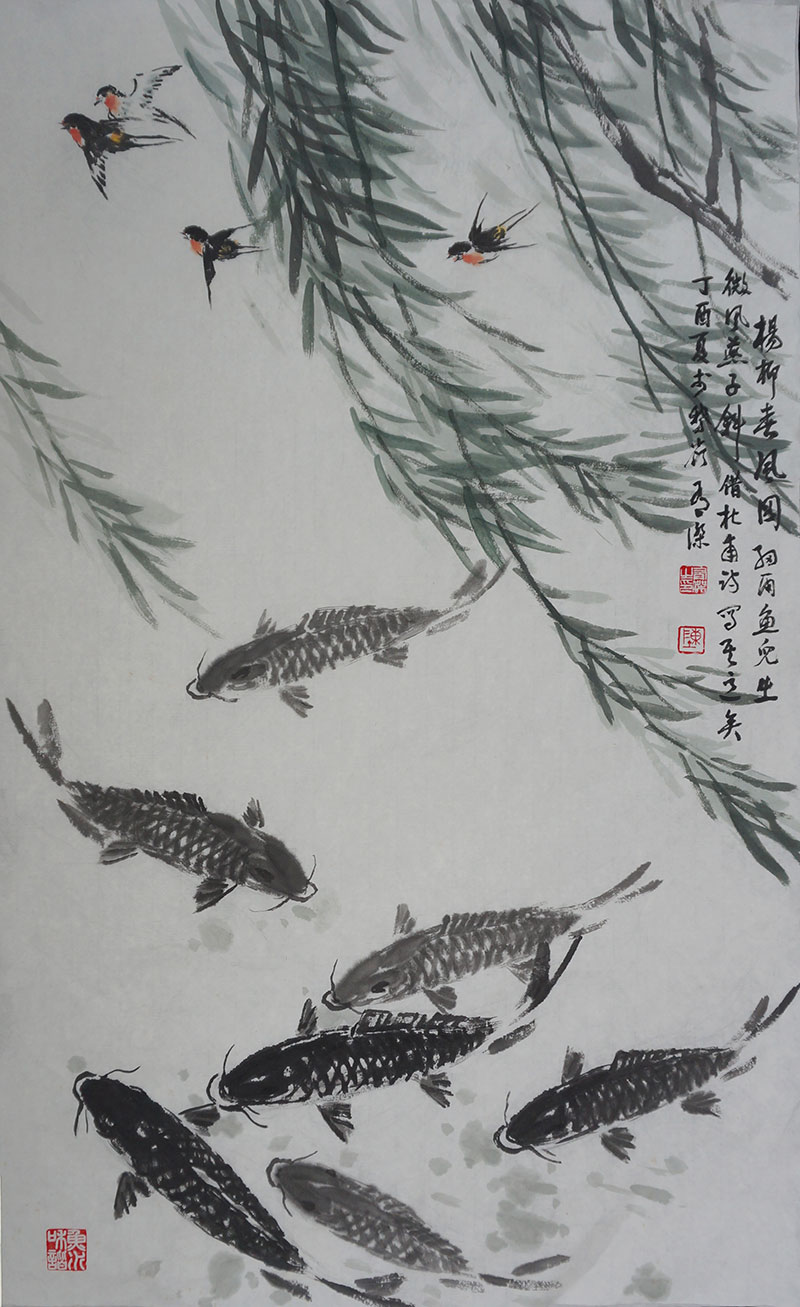 楊柳春風图 细雨鱼儿出
微风燕子斜 借杜甫诗写其意矣
丁酉夏于
陳